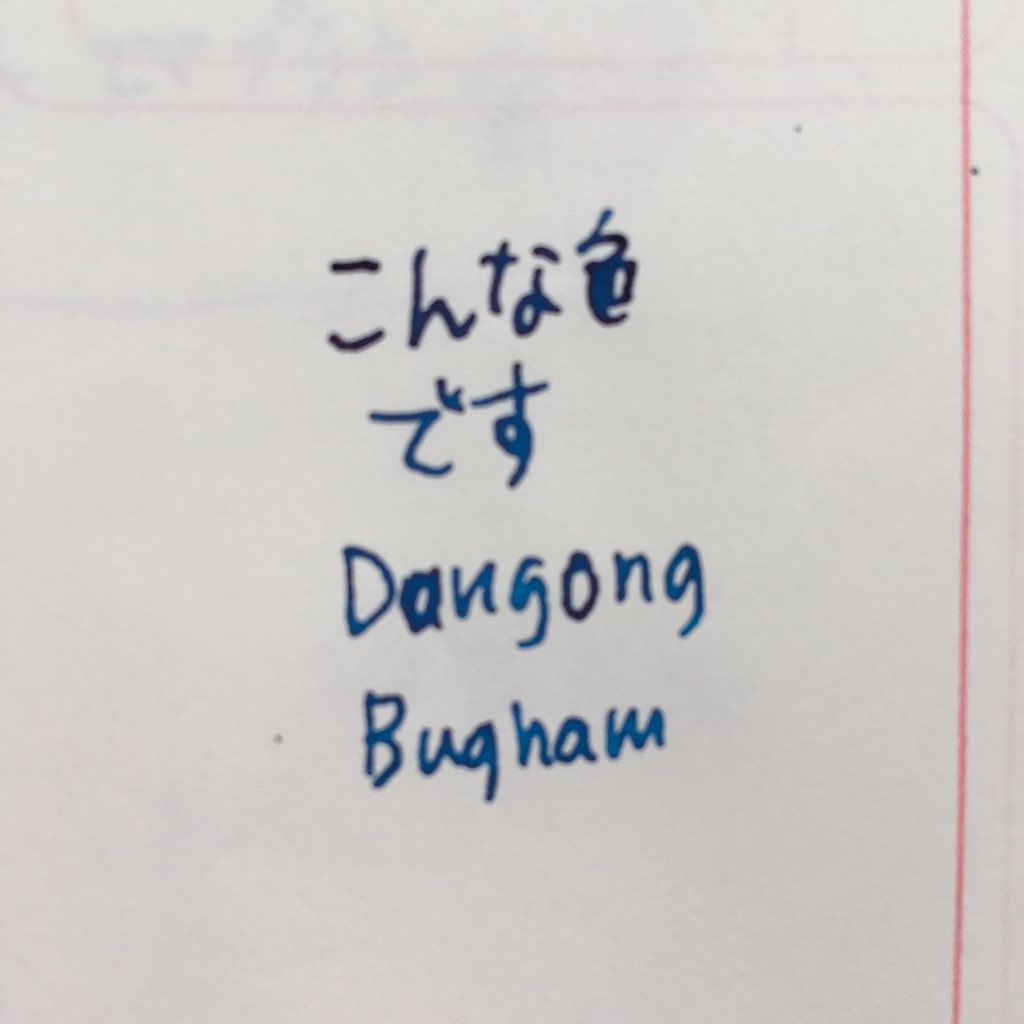 こんな色
です
Dangong
Bugham